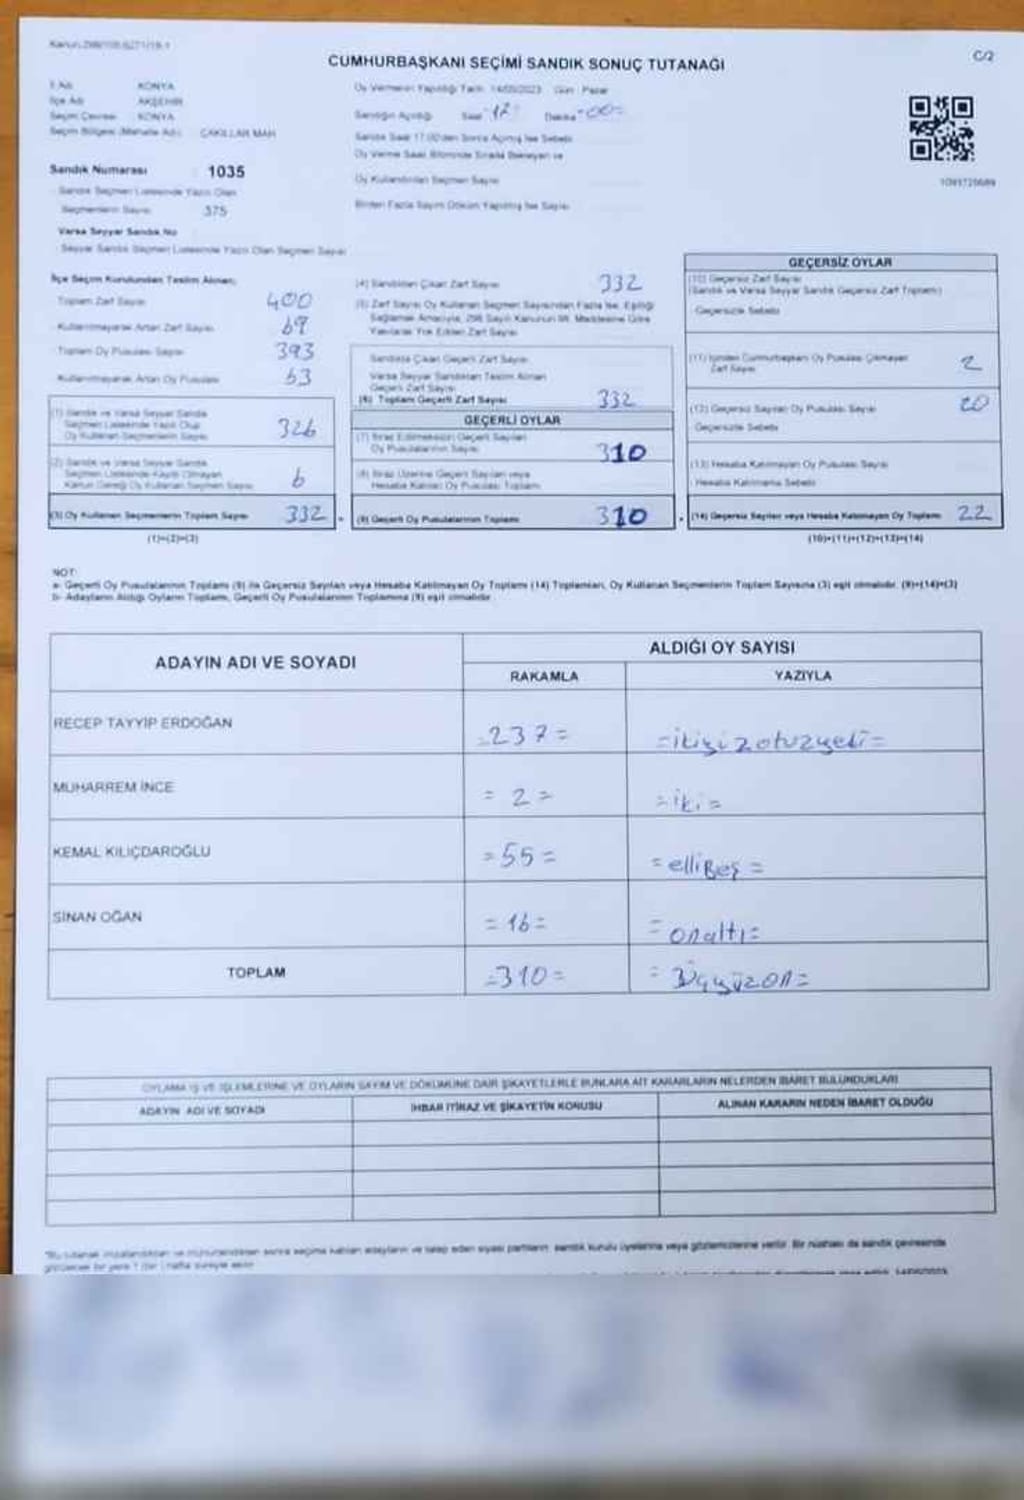 Kanun:298/105,6271/19-1
C/2
CUMHURBAŞKANI SEÇİMİ SANDIK SONUÇ TUTANAĞI
İl Adı KONYA
İlçe Adı AKŞEHİR
Seçim Çevresi KONYA
Seçim Bölgesi (Mahalle Adı) ÇAKILLAR MAH
Sandık Numarası 1035
Sandık Seçmen Listesinde Yazılı Olan
Seçmenlerin Sayısı 375
Varsa Seyyar Sandık No
Seyyar Sandık Seçmen Listesinde Yazılı Olan Seçmen Sayısı
Oy Vermenin Yapıldığı Tarih 14/05/2023 Gün Pazar
Sandığın Açıldığı Saat 17 Dakika 00
Sandık Saat 17.00'den Sonra Açılmış İse Sebebi
Oy Verme Saati Bitiminde Sırada Bekleyen ve
Oy Kullandırılan Seçmen Sayısı
Birden Fazla Sayım Döküm Yapılmış İse Sayısı
İlçe Seçim Kurulundan Teslim Alınan;
Toplam Zarf Sayısı 400
Kullanılmayarak Artan Zarf Sayısı 69
Toplam Oy Pusulası Sayısı 393
Kullanılmayarak Artan Oy Pusulası 63
(1) Sandık ve Varsa Seyyar Sandık
Seçmen Listesinde Yazılı Olup
Oy Kullanan Seçmenlerin Sayısı 326
(2) Sandık ve Varsa Seyyar Sandık
Seçmen Listesinde Kayıtlı Olmayan
Kanun Gereği Oy Kullanan Seçmen Sayısı 6
(3) Oy Kullanan Seçmenlerin Toplam Sayısı 332
(1)+(2)=(3)
(4) Sandıktan Çıkan Zarf Sayısı 332
(5) Zarf Sayısı Oy Kullanan Seçmen Sayısından Fazla İse, Eşitliği
Sağlamak Amacıyla, 298 Sayılı Kanunun 98. Maddesine Göre
Yakılarak Yok Edilen Zarf Sayısı
Sandıkta Çıkan Geçerli Zarf Sayısı
Varsa Seyyar Sandıktan Teslim Alınan
Geçerli Zarf Sayısı
(6) Toplam Geçerli Zarf Sayısı 332
GEÇERLİ OYLAR
(7) İtiraz Edilmeksizin Geçerli Sayılan
Oy Pusulalarının Sayısı 310
(8) İtiraz Üzerine Geçerli Sayılan veya
Hesaba Katılan Oy Pusulası Toplamı
(9) Geçerli Oy Pusulalarının Toplamı 310
GEÇERSİZ OYLAR
(10) Geçersiz Zarf Sayısı
(Sandık ve Varsa Seyyar Sandık Geçersiz Zarf Toplamı)
Geçersizlik Sebebi
(11) İçinden Cumhurbaşkanı Oy Pusulası Çıkmayan
Zarf Sayısı 2
(12) Geçersiz Sayılan Oy Pusulası Sayısı 20
Geçersizlik Sebebi
(13) Hesaba Katılmayan Oy Pusulası Sayısı
Hesaba Katılmama Sebebi
(14) Geçersiz Sayılan veya Hesaba Katılmayan Oy Toplamı 22
(10)+(11)+(12)+(13)=(14)
NOT:
a- Geçerli Oy Pusulalarının Toplamı (9) ile Geçersiz Sayılan veya Hesaba Katılmayan Oy Toplamı (14) Toplamları, Oy Kullanan Seçmenlerin Toplam Sayısına (3) eşit olmalıdır. (9)+(14)=(3)
b- Adayların Aldığı Oyların Toplamı, Geçerli Oy Pusulalarının Toplamına (9) eşit olmalıdır.
ADAYIN ADI VE SOYADI
ALDIĞI OY SAYISI
RAKAMLA YAZIYLA
RECEP TAYYİP ERDOĞAN =237= =ikiyüzotuzyedi=
MUHARREM İNCE =2= =iki=
KEMAL KILIÇDAROĞLU =55= =ellibeş=
SİNAN OĞAN =16= =onaltı=
TOPLAM =310= =üçyüzon=
OYLAMA İŞ VE İŞLEMLERİNE VE OYLARIN SAYIM VE DÖKÜMÜNE DAİR ŞİKAYETLERLE BUNLARA AİT KARARLARIN NELERDEN İBARET BULUNDUKLARI
ADAYIN ADI VE SOYADI İHBAR İTİRAZ VE ŞİKAYETİN KONUSU ALINAN KARARIN NEDEN İBARET OLDUĞU
*Bu tutanak imzalandıktan ve mühürlendikten sonra seçime katılan adayların ve talep eden siyasi partilerin sandık kurulu üyelerine veya gözlemcilerine verilir. Bir nüshası da sandık çevresinde